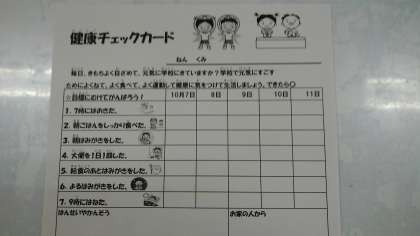 健康チェックカード
ねん　くみ
毎日、きもちよく目ざめて、元気に学校にきていますか？学校で元気にすごす
ためによくねて、よく食べて、よく運動して健康に気をつけて生活しましょう。できたら○
☆目標にむけてがんばろう！ 10月7日 8日 9日 10日 11日
1. 7時におきた。
2. 朝ごはんをしっかり食べた。
3. 朝はみがきをした。
4. 大便を1日1回した。
5. 給食のあとはみがきをした。
6. よるはみがきをした。
7. 9時にはねた。
はんせいやかんそう お家の人から